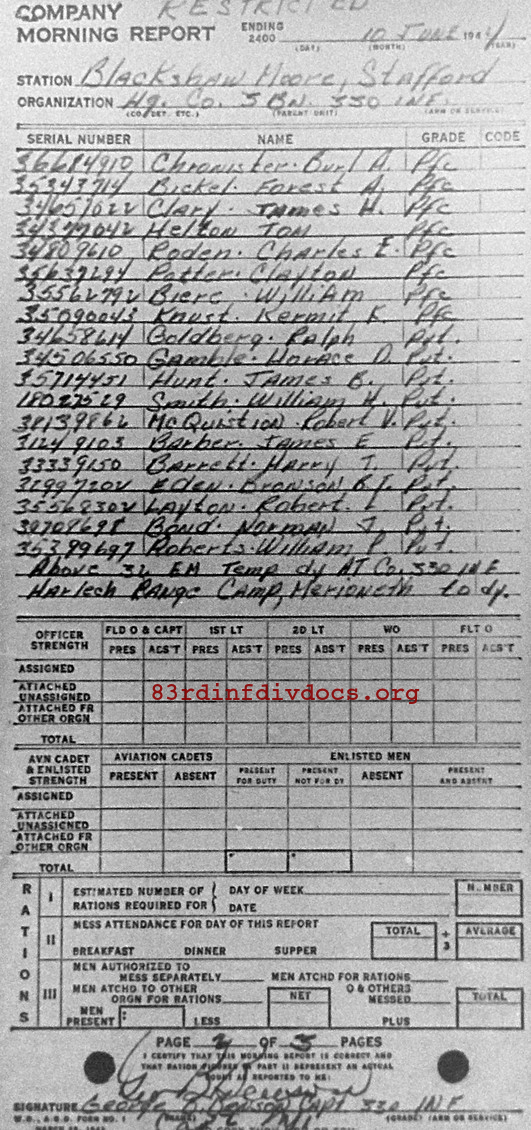 COMPANY RESTRICTED
MORNING REPORT ENDING 2400 10 JUNE 1944
(DAY) (MONTH) (YEAR)
STATION Blackshaw Moore, Stafford
ORGANIZATION Hq. Co. 3 BN. 330 INF
(CO., DET. ETC.) (PARENT UNIT) (ARM OR SERVICE)
SERIAL NUMBER NAME GRADE CODE
36684910 Chronister. Burl A. Pfc
35343714 Bickel. Forest A. Pfc
34651022 Clary. James H. Pfc
34377042 Helton Tom Pfc
34809610 Roden. Charles E. Pfc
35637294 Potter. Clayton Pfc
35562792 Bierc. William Pfc
35090043 Knust. Kermit K Pfc
34658614 Goldberg. Ralph Pvt.
34506550 Gamble. Horace D. Pvt.
35714451 Hunt. James B. Pvt.
18027529 Smith. William H. Pvt.
38139862 McQuistion. Robert V. Pvt.
31249103 Barber. James E Pvt.
33339150 Barrett. Harry T. Pvt.
Eden. Bronson Pvt.
35568302 Layton. Robert. L Pvt.
39708698 Bond. Norman J. Pvt.
35399697 Roberts. William P. Pvt.
Above 32 EM Temp dy AT Co. 330 INF
Harlech Range Camp, Merioneth to dy.
OFFICER STRENGTH FLD O & CAPT 1ST LT 2D LT WO FLT O
PRES ABS'T PRES ABS'T PRES ABS'T PRES ABS'T PRES ABS'T
ASSIGNED
ATTACHED UNASSIGNED
83rdinfdivdocs.org
ATTACHED FR OTHER ORGN
TOTAL
AVN CADET & ENLISTED STRENGTH AVIATION CADETS ENLISTED MEN
PRESENT ABSENT PRESENT FOR DUTY PRESENT NOT FOR DY ABSENT PRESENT AND ABSENT
ASSIGNED
ATTACHED UNASSIGNED
ATTACHED FR OTHER ORGN
TOTAL
RATIONS
I ESTIMATED NUMBER OF RATIONS REQUIRED FOR { DAY OF WEEK DATE NUMBER
II MESS ATTENDANCE FOR DAY OF THIS REPORT TOTAL ÷ 3 AVERAGE
BREAKFAST DINNER SUPPER
III MEN AUTHORIZED TO MESS SEPARATELY MEN ATCHD FOR RATIONS
MEN ATCHD TO OTHER ORGN FOR RATIONS NET O & OTHERS MESSED TOTAL
MEN PRESENT LESS PLUS
PAGE 2 OF 3 PAGES
I CERTIFY THAT THIS MORNING REPORT IS CORRECT AND
THAT RATION FIGURES IN PART II REPRESENT AN ACTUAL
COUNT AS REPORTED TO ME:
SIGNATURE George Capt 330 INF
(GRADE) (ARM OR SERVICE)
W.D., A.G.O. FORM NO. 1